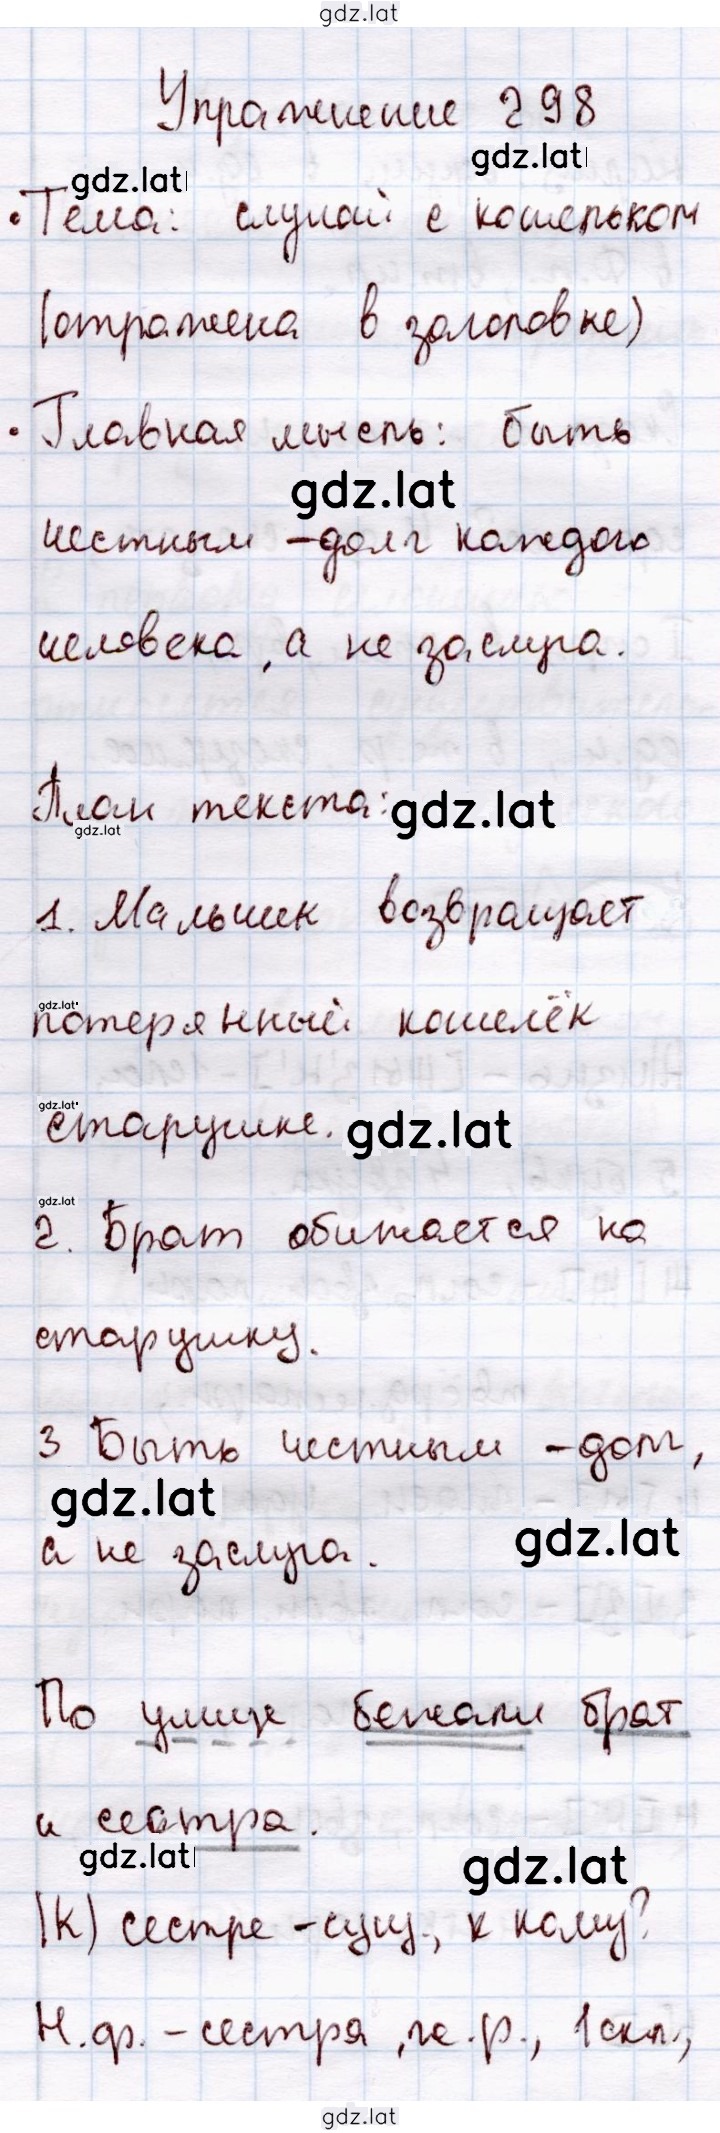 gdz.lat
Упражнение 298
gdz.lat
gdz.lat
• Тема: случай с кошельком
(отражена в заголовке)
• Главная мысль: быть
gdz.lat
честным – долг каждого
человека, а не заслуга.
План текста:
gdz.lat
gdz.lat
1. Мальчик возвращает
gdz.lat
потерянный кошелёк
gdz.lat
старушке.
gdz.lat
gdz.lat
2. Брат обижается на
старушку.
3 Быть честным – долг,
gdz.lat
а не заслуга.
gdz.lat
По улице бежали брат
и сестра.
gdz.lat
gdz.lat
(К) сестре – сущ., к кому?
Н.ф. – сестра, ж.р., 1 скл.,
gdz.lat